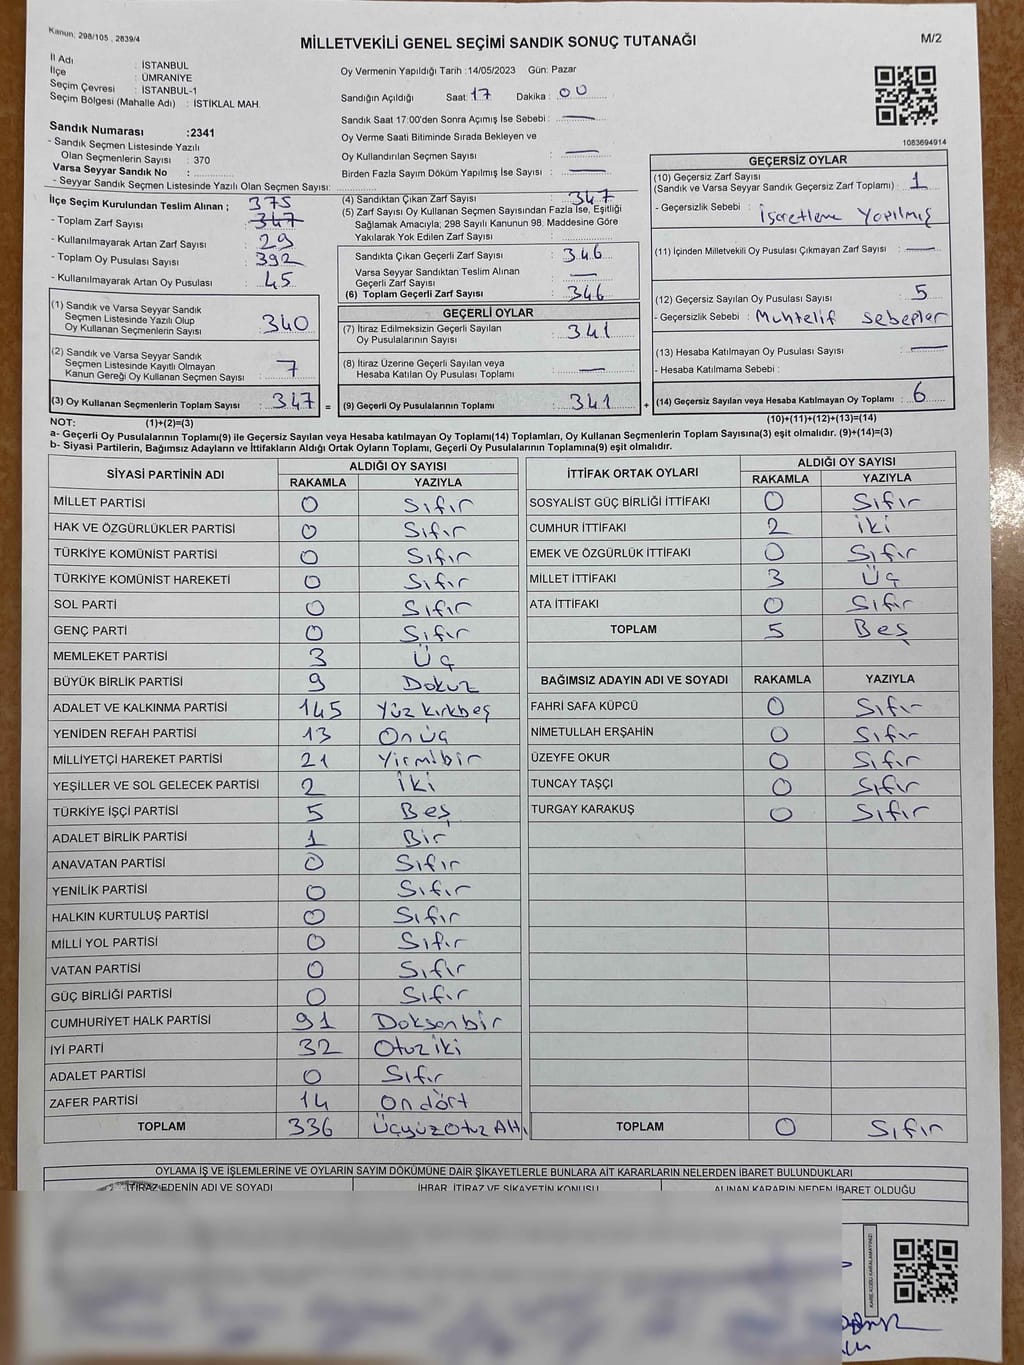 Kanun: 298/105 , 2839/4
MİLLETVEKİLİ GENEL SEÇİMİ SANDIK SONUÇ TUTANAĞI
M/2
İl Adı : İSTANBUL
İlçe : ÜMRANİYE
Seçim Çevresi : İSTANBUL-1
Seçim Bölgesi (Mahalle Adı) : İSTİKLAL MAH.
Sandık Numarası :2341
- Sandık Seçmen Listesinde Yazılı
Olan Seçmenlerin Sayısı : 370
Varsa Seyyar Sandık No :
- Seyyar Sandık Seçmen Listesinde Yazılı Olan Seçmen Sayısı:
Oy Vermenin Yapıldığı Tarih :14/05/2023 Gün: Pazar
Sandığın Açıldığı Saat: 17 Dakika : 00
Sandık Saat 17:00'den Sonra Açımış İse Sebebi : —
Oy Verme Saati Bitiminde Sırada Bekleyen ve
Oy Kullandırılan Seçmen Sayısı : —
Birden Fazla Sayım Döküm Yapılmış İse Sayısı : —
1083694914
İlçe Seçim Kurulundan Teslim Alınan ; 375
- Toplam Zarf Sayısı : 347
- Kullanılmayarak Artan Zarf Sayısı : 29
- Toplam Oy Pusulası Sayısı : 392
- Kullanılmayarak Artan Oy Pusulası : 45
(1) Sandık ve Varsa Seyyar Sandık
Seçmen Listesinde Yazılı Olup
Oy Kullanan Seçmenlerin Sayısı : 340
(2) Sandık ve Varsa Seyyar Sandık
Seçmen Listesinde Kayıtlı Olmayan
Kanun Gereği Oy Kullanan Seçmen Sayısı : 7
(3) Oy Kullanan Seçmenlerin Toplam Sayısı : 347 =
(4) Sandıktan Çıkan Zarf Sayısı : 347
(5) Zarf Sayısı Oy Kullanan Seçmen Sayısından Fazla İse, Eşitliği
Sağlamak Amacıyla; 298 Sayılı Kanunun 98. Maddesine Göre
Yakılarak Yok Edilen Zarf Sayısı :
Sandıkta Çıkan Geçerli Zarf Sayısı : 346
Varsa Seyyar Sandıktan Teslim Alınan
Geçerli Zarf Sayısı : —
(6) Toplam Geçerli Zarf Sayısı : 346
GEÇERLİ OYLAR
(7) İtiraz Edilmeksizin Geçerli Sayılan
Oy Pusulalarının Sayısı : 341
(8) İtiraz Üzerine Geçerli Sayılan veya
Hesaba Katılan Oy Pusulası Toplamı : —
(9) Geçerli Oy Pusulalarının Toplamı : 341 +
GEÇERSİZ OYLAR
(10) Geçersiz Zarf Sayısı
(Sandık ve Varsa Seyyar Sandık Geçersiz Zarf Toplamı) : 1
- Geçersizlik Sebebi : İşaretleme Yapılmış
(11) İçinden Milletvekili Oy Pusulası Çıkmayan Zarf Sayısı : —
(12) Geçersiz Sayılan Oy Pusulası Sayısı : 5
- Geçersizlik Sebebi : Muhtelif sebepler
(13) Hesaba Katılmayan Oy Pusulası Sayısı : —
- Hesaba Katılmama Sebebi :
(14) Geçersiz Sayılan veya Hesaba Katılmayan Oy Toplamı : 6
NOT: (1)+(2)=(3) (10)+(11)+(12)+(13)=(14)
a- Geçerli Oy Pusulalarının Toplamı(9) ile Geçersiz Sayılan veya Hesaba katılmayan Oy Toplamı(14) Toplamları, Oy Kullanan Seçmenlerin Toplam Sayısına(3) eşit olmalıdır. (9)+(14)=(3)
b- Siyasi Partilerin, Bağımsız Adayların ve İttifakların Aldığı Ortak Oyların Toplamı, Geçerli Oy Pusulalarının Toplamına(9) eşit olmalıdır.
SİYASİ PARTİNİN ADI ALDIĞI OY SAYISI
RAKAMLA YAZIYLA
MİLLET PARTİSİ 0 Sıfır
HAK VE ÖZGÜRLÜKLER PARTİSİ 0 Sıfır
TÜRKİYE KOMÜNİST PARTİSİ 0 Sıfır
TÜRKİYE KOMÜNİST HAREKETİ 0 Sıfır
SOL PARTİ 0 Sıfır
GENÇ PARTİ 0 Sıfır
MEMLEKET PARTİSİ 3 Üç
BÜYÜK BİRLİK PARTİSİ 9 Dokuz
ADALET VE KALKINMA PARTİSİ 145 Yüz kırkbeş
YENİDEN REFAH PARTİSİ 13 Onüç
MİLLİYETÇİ HAREKET PARTİSİ 21 Yirmibir
YEŞİLLER VE SOL GELECEK PARTİSİ 2 İki
TÜRKİYE İŞÇİ PARTİSİ 5 Beş
ADALET BİRLİK PARTİSİ 1 Bir
ANAVATAN PARTİSİ 0 Sıfır
YENİLİK PARTİSİ 0 Sıfır
HALKIN KURTULUŞ PARTİSİ 0 Sıfır
MİLLİ YOL PARTİSİ 0 Sıfır
VATAN PARTİSİ 0 Sıfır
GÜÇ BİRLİĞİ PARTİSİ 0 Sıfır
CUMHURİYET HALK PARTİSİ 91 Doksanbir
İYİ PARTİ 32 Otuziki
ADALET PARTİSİ 0 Sıfır
ZAFER PARTİSİ 14 Ondört
TOPLAM 336 ÜçyüzOtuz Altı
İTTİFAK ORTAK OYLARI ALDIĞI OY SAYISI
RAKAMLA YAZIYLA
SOSYALİST GÜÇ BİRLİĞİ İTTİFAKI 0 Sıfır
CUMHUR İTTİFAKI 2 İki
EMEK VE ÖZGÜRLÜK İTTİFAKI 0 Sıfır
MİLLET İTTİFAKI 3 Üç
ATA İTTİFAKI 0 Sıfır
TOPLAM 5 Beş
BAĞIMSIZ ADAYIN ADI VE SOYADI RAKAMLA YAZIYLA
FAHRİ SAFA KÜPCÜ 0 Sıfır
NİMETULLAH ERŞAHİN 0 Sıfır
ÜZEYFE OKUR 0 Sıfır
TUNCAY TAŞÇI 0 Sıfır
TURGAY KARAKUŞ 0 Sıfır
TOPLAM 0 Sıfır
OYLAMA İŞ VE İŞLEMLERİNE VE OYLARIN SAYIM DÖKÜMÜNE DAİR ŞİKAYETLERLE BUNLARA AİT KARARLARIN NELERDEN İBARET BULUNDUKLARI
İTİRAZ EDENİN ADI VE SOYADI İHBAR, İTİRAZ VE ŞİKAYETİN KONUSU ALINAN KARARIN NEDEN İBARET OLDUĞU
KARE KODU KARALAMAYINIZ!